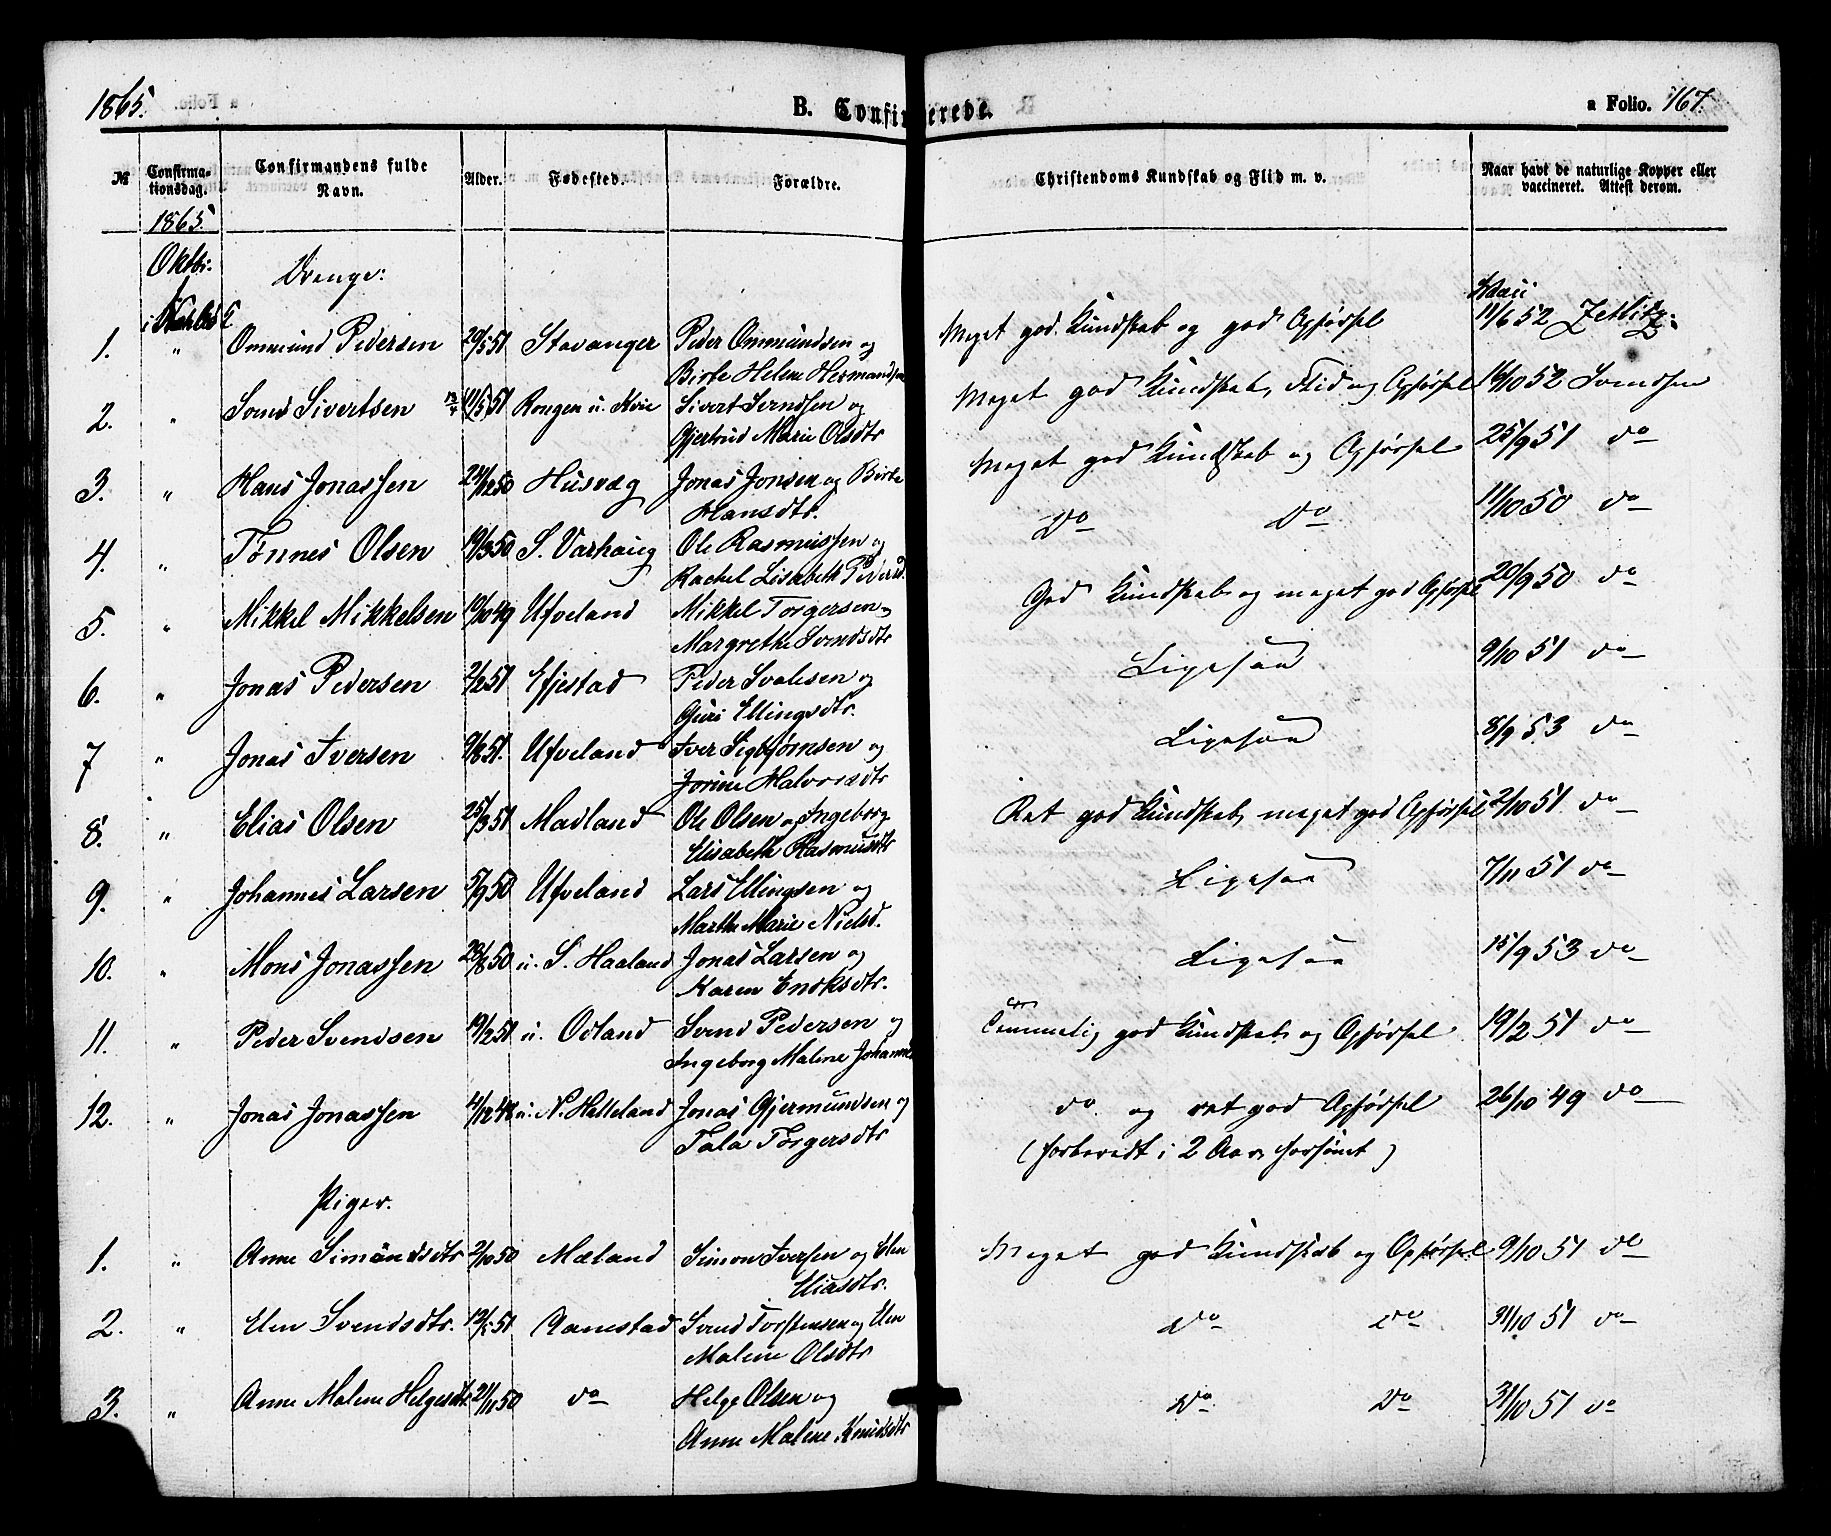 1865.
B. Confirmerede.
a Folio. 167.
№
Confirma-
tionsdag.
Confirmandens fulde
Navn.
Alder.
Fødested.
Forældre.
Christendoms Kundskab og Flid m. v.
Naar havt de naturlige Kopper eller
vaccineret. Attest derom.
1865
Oktbr.
Drenge:
1. " Ommund Pedersen 20/5 51 Stavanger Peder Ommundsen og Meget god Kundskab og god Opførsel 11/6 52 Zetlitz.
Birte Helene Hermandsen
2. " Svend Sivertsen 11/5 51 Rongen u. Kvie Sivert Svendsen og Meget god Kundskab, Flid og Opførsel 14/10 52 Svendsen
Gjertrud Marie Olsdtr
3. " Hans Jonassen 24/12 50 Husvæg Jonas Jonsen og Birte Meget god Kundskab og Opførsel 25/9 51 do
Hansdtr.
4. " Tønnes Olsen 19/3 50 S. Varhaug Ole Rasmussen og Do Do 11/10 50 do
Rachel Lisabeth Pedersd.
5. " Mikkel Mikkelsen 10/10 49 Ufveland Mikkel Torgersen og God Kundskab og meget god Opførsel 20/9 50 do
Margrethe Svendsdtr
6. " Jonas Pedersen 2/2 51 Efjestad Peder Svalesen og Ligesaa 9/10 51 do
Guri Ellingsdtr.
7 " Jonas Iversen 9/8 51. Ufveland Iver Sigbjørnsen og Ligesaa 8/9 53 do
Jorine Halvorsdtr
8. " Elias Olsen 25/3 51 Madland Ole Olsen og Ingeborg Ret god Kundskab, meget god Opførsel 2/10 51 do
Elisabeth Rasmusdtr
9. " Johannes Larsen 5/9 50 Ufveland Lars Ellingsen og Ligesaa 7/11 51 do
Marthe Marie Nielsd.
10. " Mons Jonassen 23/8 50 u. S. Haaland Jonas Larsen og Ligesaa 15/9 53 do
Karen Eriksdtr.
11. " Peder Svendsen 19/2 51 u. Odland Svend Pedersen og Temmelig god Kundskab og Opførsel 19/2 51 do
Ingeborg Malene Johannes
12. " Jonas Jonassen 4/12 48 u. N. Hetteland Jonas Gjermundsen og do og ret god Opførsel 26/10 49 do
Tala Torgersdtr (forberedt i 2 Aar, forsømt)
Piger.
1. " Anne Simonsdtr 2/10 50 Mæland Simon Iversen og Elen Meget god Kundskab og Opførsel 9/10 51 do
Eliasdtr.
2. " Elen Svendsdtr. 12/5 51 Aanestad Svend Torstensen og Elen Do do 31/10 51 do
Malene Olsdtr
3. " Anne Malene Helgesdtr 21/11 50 do Helge Olsen og Do Do 31/10 51 do
Anne Malene Knudsdtr